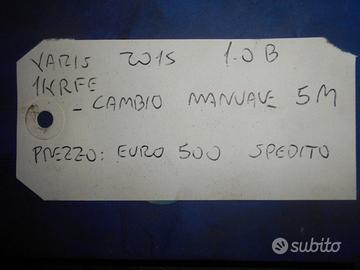 YARIS 2015 1.0 B
1KRFE
- CAMBIO MANUALE 5M
PREZZO: EURO 500 SPEDITO
subito